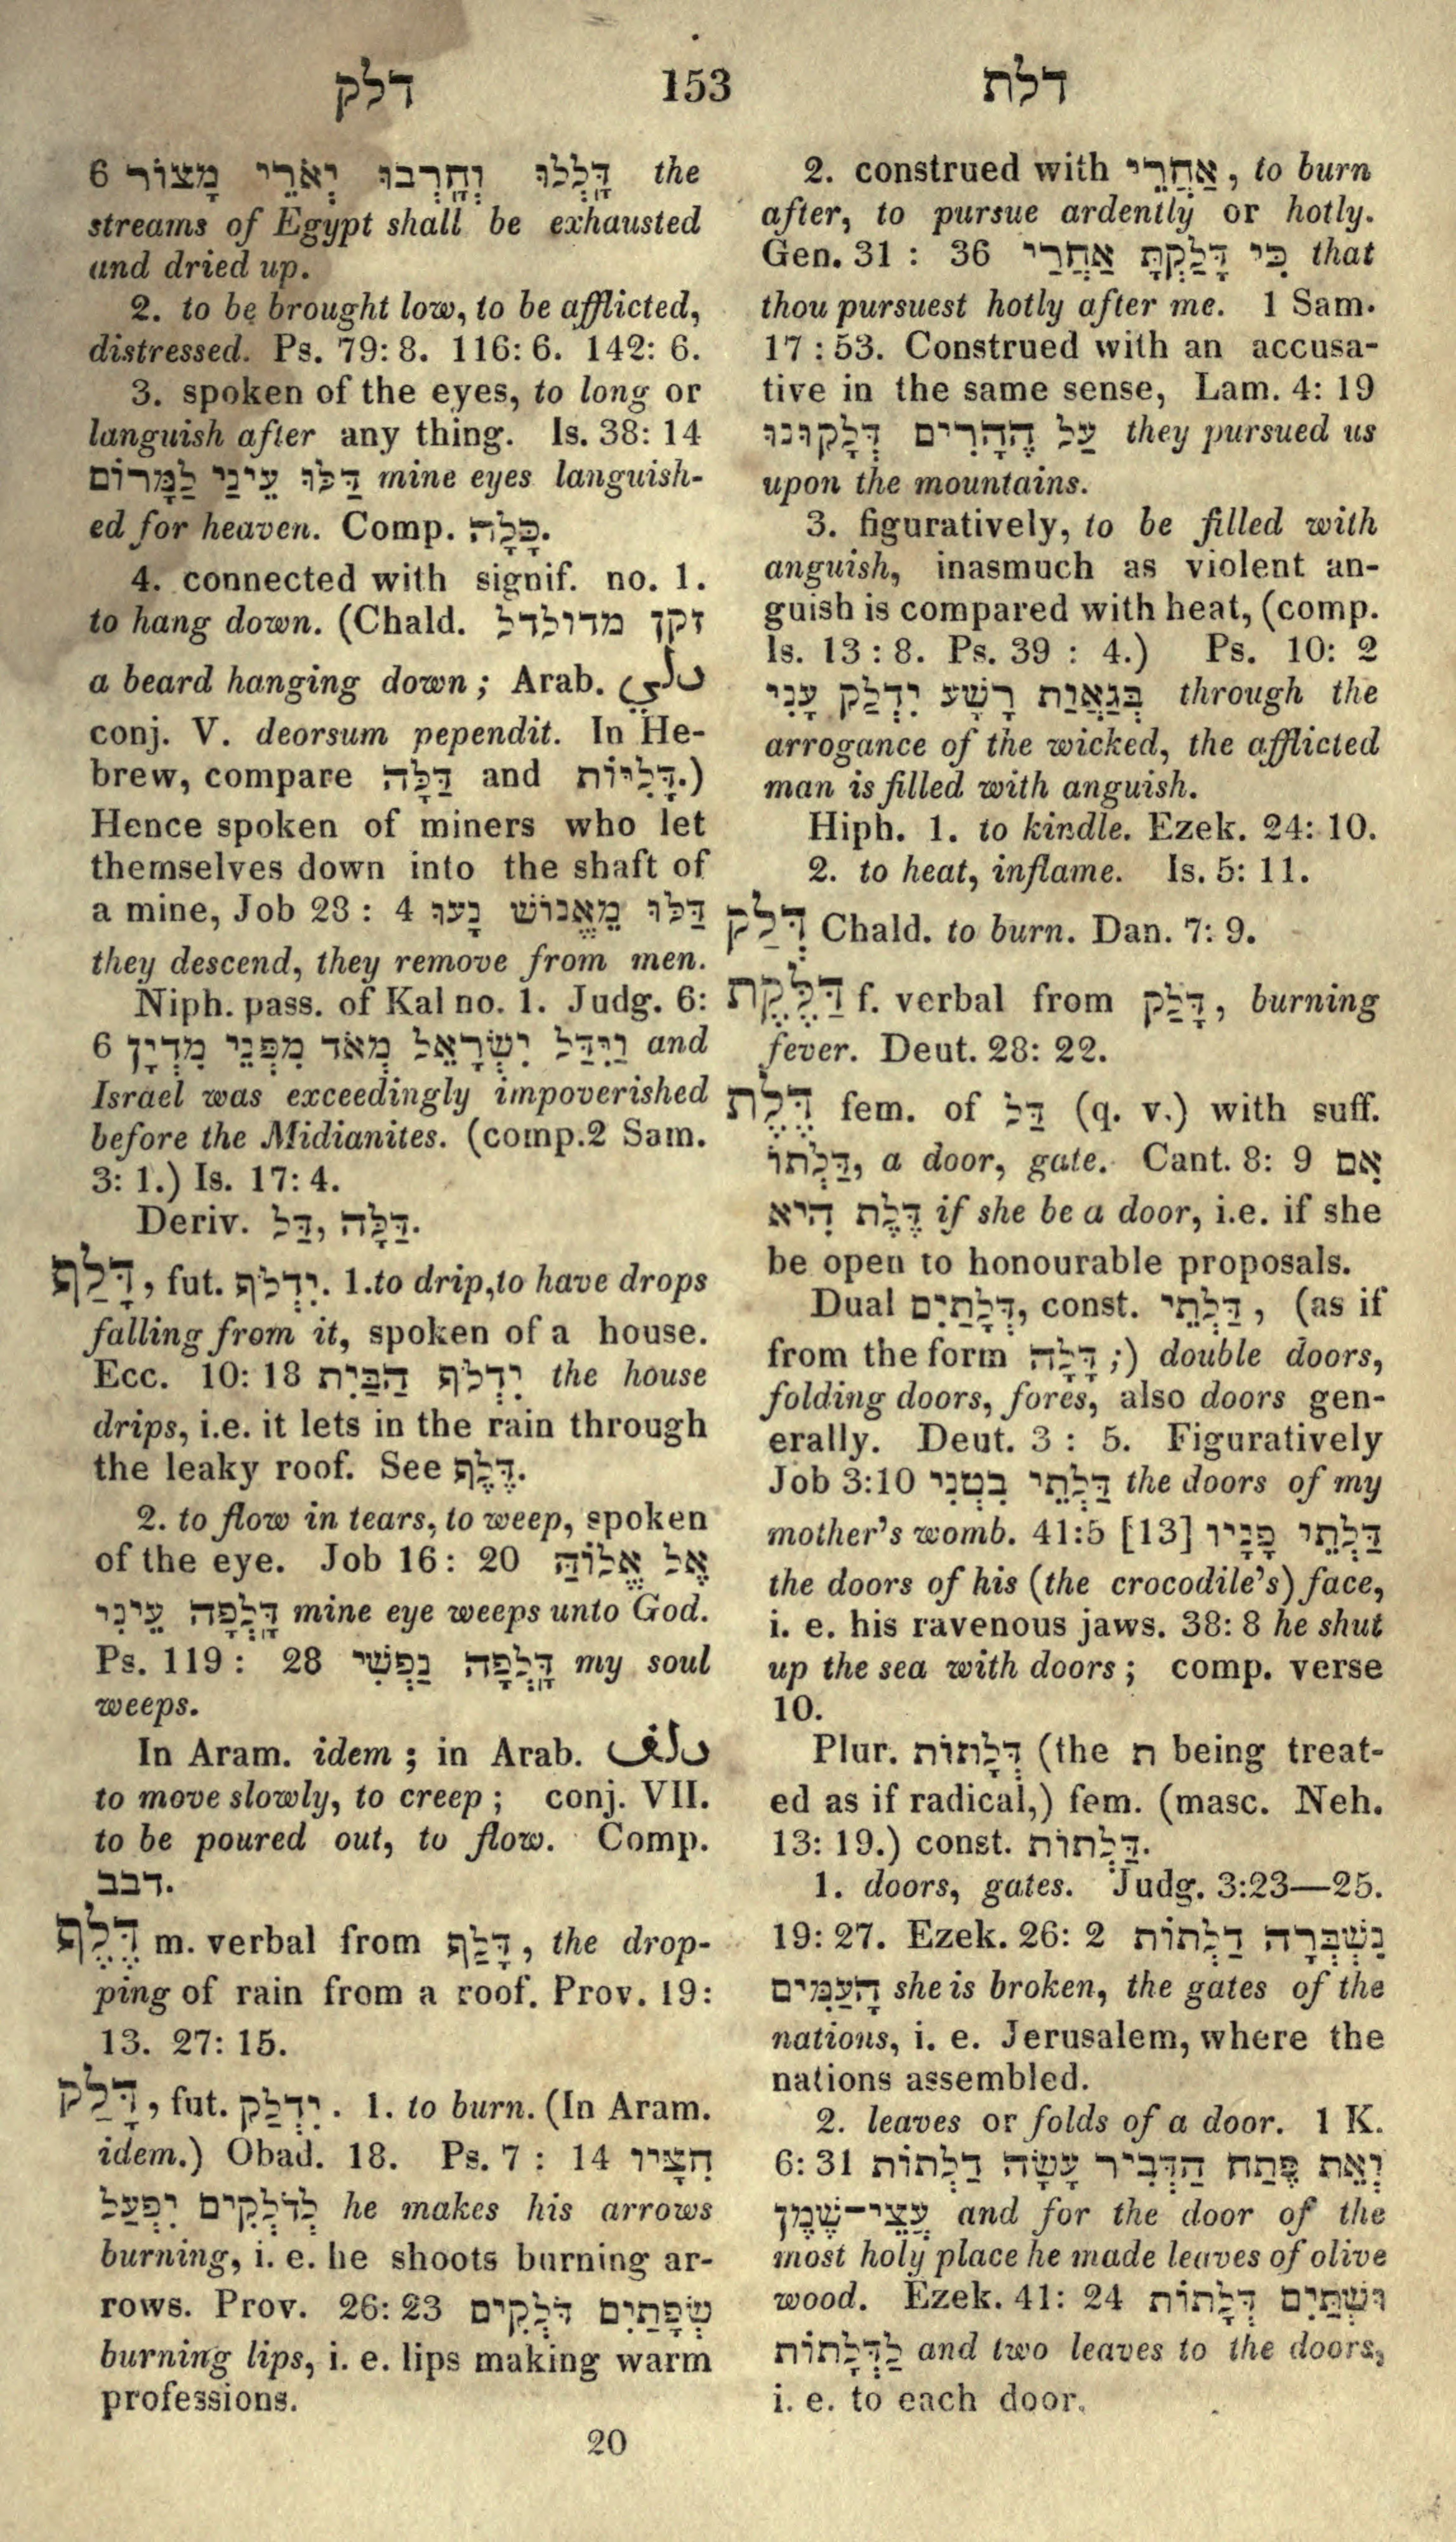 דלק 153 דלת
6 דָּלֲלוּ וְחָרְבוּ יְאֹרֵי מָצוֹר the
streams of Egypt shall be exhausted
and dried up.
2. to be brought low, to be afflicted,
distressed. Ps. 79: 8. 116: 6. 142: 6.
3. spoken of the eyes, to long or
languish after any thing. Is. 38: 14
דַּלּוּ עֵינַי לַמָּרוֹם mine eyes languish-
ed for heaven. Comp. כָּלָה.
4. connected with signif. no. 1.
to hang down. (Chald. זקן מדולדל
a beard hanging down; Arab. دلي
conj. V. deorsum pependit. In He-
brew, compare דַּלָּה and דָּלִיּוֹת.)
Hence spoken of miners who let
themselves down into the shaft of
a mine, Job 28: 4 דַּלּוּ מֵאֱנוֹשׁ נָעוּ
they descend, they remove from men.
Niph. pass. of Kal no. 1. Judg. 6:
6 וַיִּדַּל יִשְׂרָאֵל מְאֹד מִפְּנֵי מִדְיָן and
Israel was exceedingly impoverished
before the Midianites. (comp.2 Sam.
3: 1.) Is. 17: 4.
Deriv. דַּל, דַּלָּה.
דָּלַף, fut. יִדְלֹף. 1.to drip,to have drops
falling from it, spoken of a house.
Ecc. 10: 18 יִדְלֹף הַבַּיִת the house
drips, i.e. it lets in the rain through
the leaky roof. See דֶּלֶף.
2. to flow in tears, to weep, spoken
of the eye. Job 16: 20 אֶל אֱלוֹהַּ
דָּלֲפָה עֵינִי mine eye weeps unto God.
Ps. 119: 28 דָּלֲפָה נַפְשִׁי my soul
weeps.
In Aram. idem; in Arab. دلف
to move slowly, to creep; conj. VII.
to be poured out, to flow. Comp.
דבב.
דֶּלֶף m. verbal from דָּלַף, the drop-
ping of rain from a roof. Prov. 19:
13. 27: 15.
דָּלַק, fut. יִדְלַק. 1. to burn. (In Aram.
idem.) Obad. 18. Ps. 7: 14 חִצָּיו
לְדֹלְקִים יִפְעַל he makes his arrows
burning, i. e. he shoots burning ar-
rows. Prov. 26: 23 שְׂפָתַיִם דֹּלְקִים
burning lips, i. e. lips making warm
professions.
2. construed with אַחֲרֵי, to burn
after, to pursue ardently or hotly.
Gen. 31: 36 כִּי דָלַקְתָּ אַחֲרַי that
thou pursuest hotly after me. 1 Sam.
17: 53. Construed with an accusa-
tive in the same sense, Lam. 4: 19
עַל הֶהָרִים דְּלָקוּנוּ they pursued us
upon the mountains.
3. figuratively, to be filled with
anguish, inasmuch as violent an-
guish is compared with heat, (comp.
Is. 13: 8. Ps. 39: 4.) Ps. 10: 2
בְּגַאֲוַת רָשָׁע יִדְלַק עָנִי through the
arrogance of the wicked, the afflicted
man is filled with anguish.
Hiph. 1. to kindle. Ezek. 24: 10.
2. to heat, inflame. Is. 5: 11.
דְּלַק Chald. to burn. Dan. 7: 9.
דַּלֶּקֶת f. verbal from דָּלַק, burning
fever. Deut. 28: 22.
דֶּלֶת fem. of דַּל (q. v.) with suff.
דַּלְתוֹ, a door, gate. Cant. 8: 9 אִם
דֶּלֶת הִיא if she be a door, i.e. if she
be open to honourable proposals.
Dual דְּלָתַיִם, const. דַּלְתֵי, (as if
from the form דָּלָה;) double doors,
folding doors, fores, also doors gen-
erally. Deut. 3: 5. Figuratively
Job 3:10 דַּלְתֵי בִטְנִי the doors of my
mother's womb. 41:5 [13] דַּלְתֵי פָנָיו
the doors of his (the crocodile's) face,
i. e. his ravenous jaws. 38: 8 he shut
up the sea with doors; comp. verse
10.
Plur. דְּלָתוֹת (the ת being treat-
ed as if radical,) fem. (masc. Neh.
13: 19.) const. דַּלְתוֹת.
1. doors, gates. Judg. 3:23—25.
19: 27. Ezek. 26: 2 נִשְׁבְּרָה דַלְתוֹת
הָעַמִּים she is broken, the gates of the
nations, i. e. Jerusalem, where the
nations assembled.
2. leaves or folds of a door. 1 K.
6: 31 וְאֵת פֶּתַח הַדְּבִיר עָשָׂה דַלְתוֹת
עֲצֵי־שֶׁמֶן and for the door of the
most holy place he made leaves of olive
wood. Ezek. 41: 24 וּשְׁתַּיִם דְּלָתוֹת
לַדְּלָתוֹת and two leaves to the doors,
i. e. to each door.
20